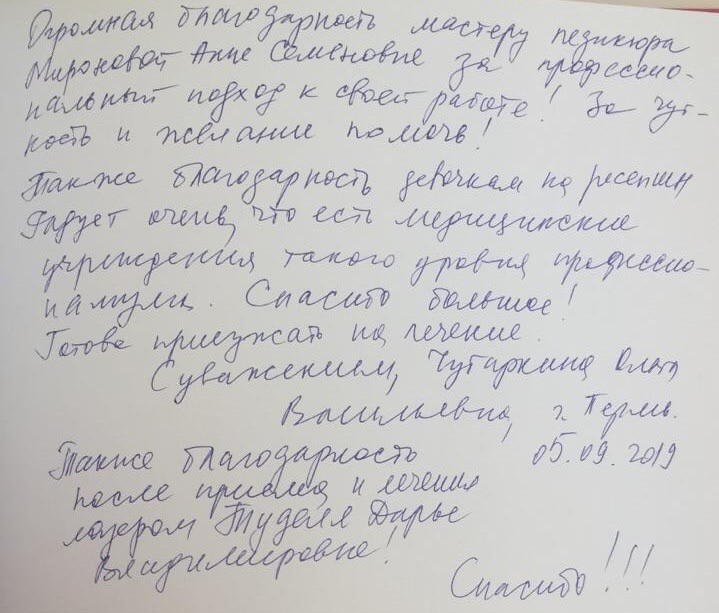 Огромная благодарность мастеру педикюра
Мироновой Анне Семеновне за профессио-
нальный подход к своей работе! За чут-
кость и желание помочь!
Также благодарность девочкам на ресепшн
Радует очень, что есть медицинские
учреждения такого уровня профессио-
нализма. Спасибо большое!
Готова приезжать на лечение.
С уважением, Чугаркина Ольга
Васильевна, г. Пермь.
05.09.2019
Также благодарность
после приема и лечения
лазером Дарье
Владимировне!
Спасибо!!!